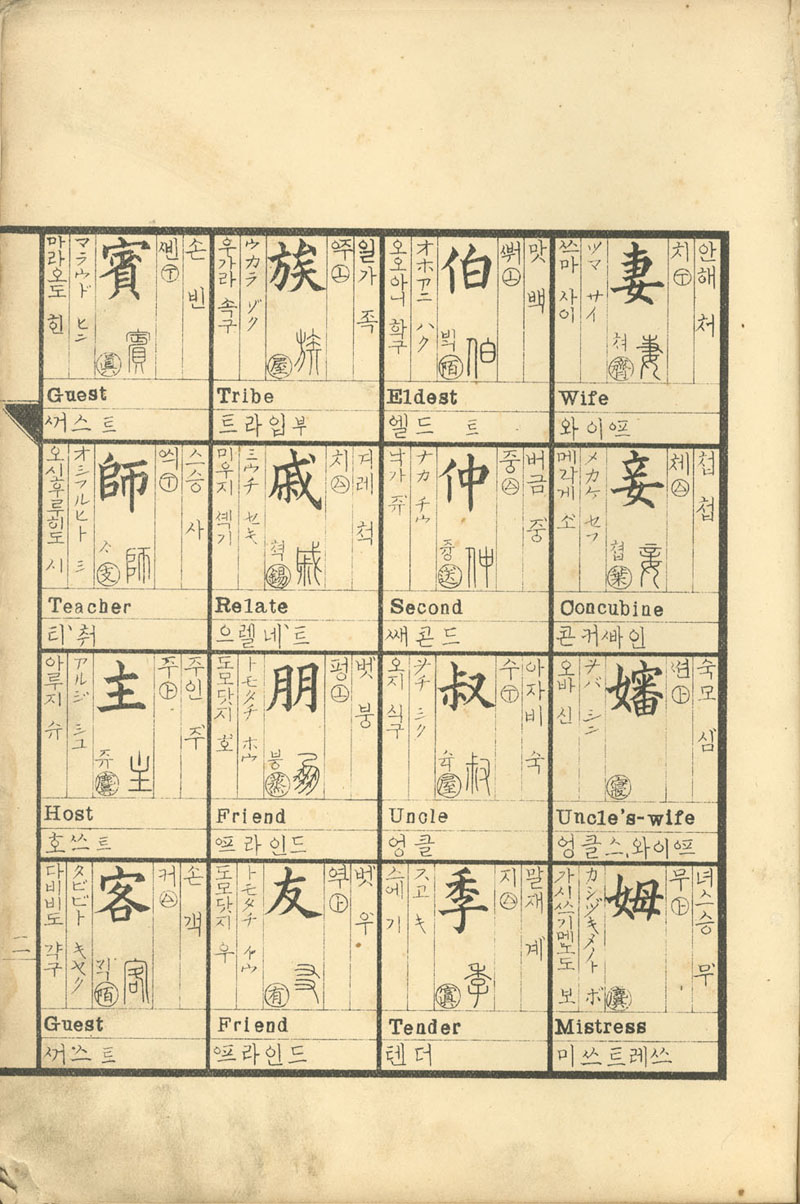 안해 처
치 ㊦
妻
쳐 齊
ツマ サイ
쓰마 사이
Wife
와이ᅋᅳ
첩 첩
쳬
妾
첩 葉
メカケ セフ
메가게 쇼
Concubine
콘커쌔인
숙모 심
㊤
嬸
寢
ヲバ シン
오바 신
Uncle's-wife
엉클스,와이ᅋᅳ
녀스승 무
무 ㊤
姆
麌
カシヅキメノト ボ
가시쓰기메노도 보
Mistress
미쓰트레쓰
맛 백
㊤
伯
陌
オホアニ ハク
오오아니 학구
Eldest
엘드 트
버금 중
중
仲
즁 送
ナカ チウ
낙가 쥬
Second
쌔콘드
아자비 숙
수 ㊦
叔
슉 屋
ヲヂ シク
오지 식구
Uncle
엉클
말재 계
지
季
寘
スヱ キ
스에 기
Tender
텐더
일가 족
주 ㊤
族
屋
ウカラ ゾク
우가라 속구
Tribe
트라입부
겨레 척
치
戚
쳑 錫
ミウチ セキ
미우지 셱기
Relate
으렐네트
벗 붕
펑 ㊤
朋
붕 蒸
トモダチ ホウ
도모닷지 호
Friend
ᅋᅳ라인드
벗 우
역 ㊤
友
有
トモダチ イウ
도모닷지 우
Friend
ᅋᅳ라인드
손 빈
삔 ㊦
賓
眞
マラウド ヒン
마라오도 힌
Guest
꺼스트
스승 사
씌 ㊦
師
支
オシフルヒト シ
오시후루히도 시
Teacher
티취
주인 주
주 ㊤
主
쥬 麌
アルジ シユ
아루지 슈
Host
호쓰트
손 객
커
客
陌
タビビト キヤク
다비비도 갹구
Guest
꺼쓰트
二